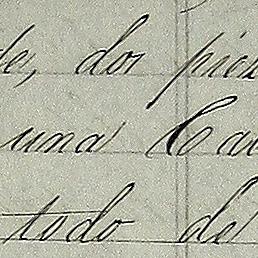 de, dos piez
una Ca
todo de